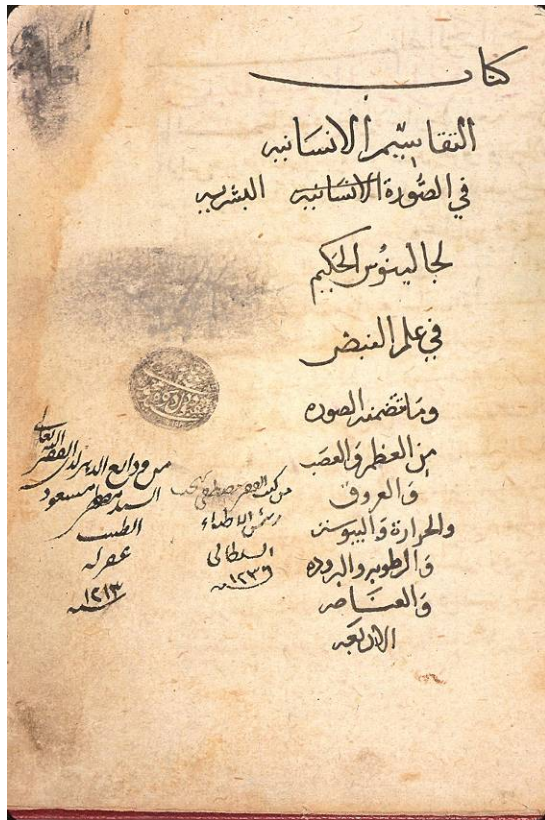 كتاب
التقاسيم الانسانيه
في الصورة الانسانيه البشريه
لجالينوس الحكيم
في علم النبض
وما تضمنه الصوره
من العظم والعصب
والعروق
والحرارة واليبوسه
والرطوبه والبروده
والعناصر
الاربعه
من كتب مصطفى بهجت
رئيس الاطباء
السلطاني
١٢٣٩
من ودايع الدهر لدى الفقير
السيد مسعود
الطبيب
غفر له
١٢١٣